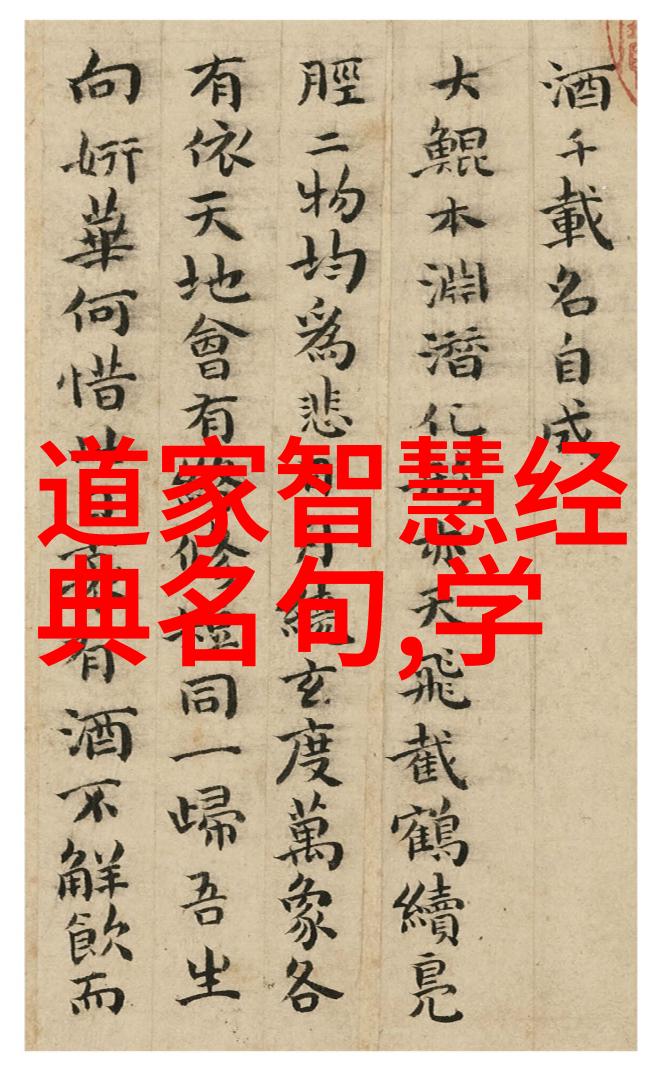 酒千載名自成
大鯤本淵潛化亦天飛截鶴續鳧
脛二物均爲悲日月繞玄度萬象各
有依天地會有終修短同一歸吾生
向妍華何惜有酒不解飲而
道家智慧经
典名句,学